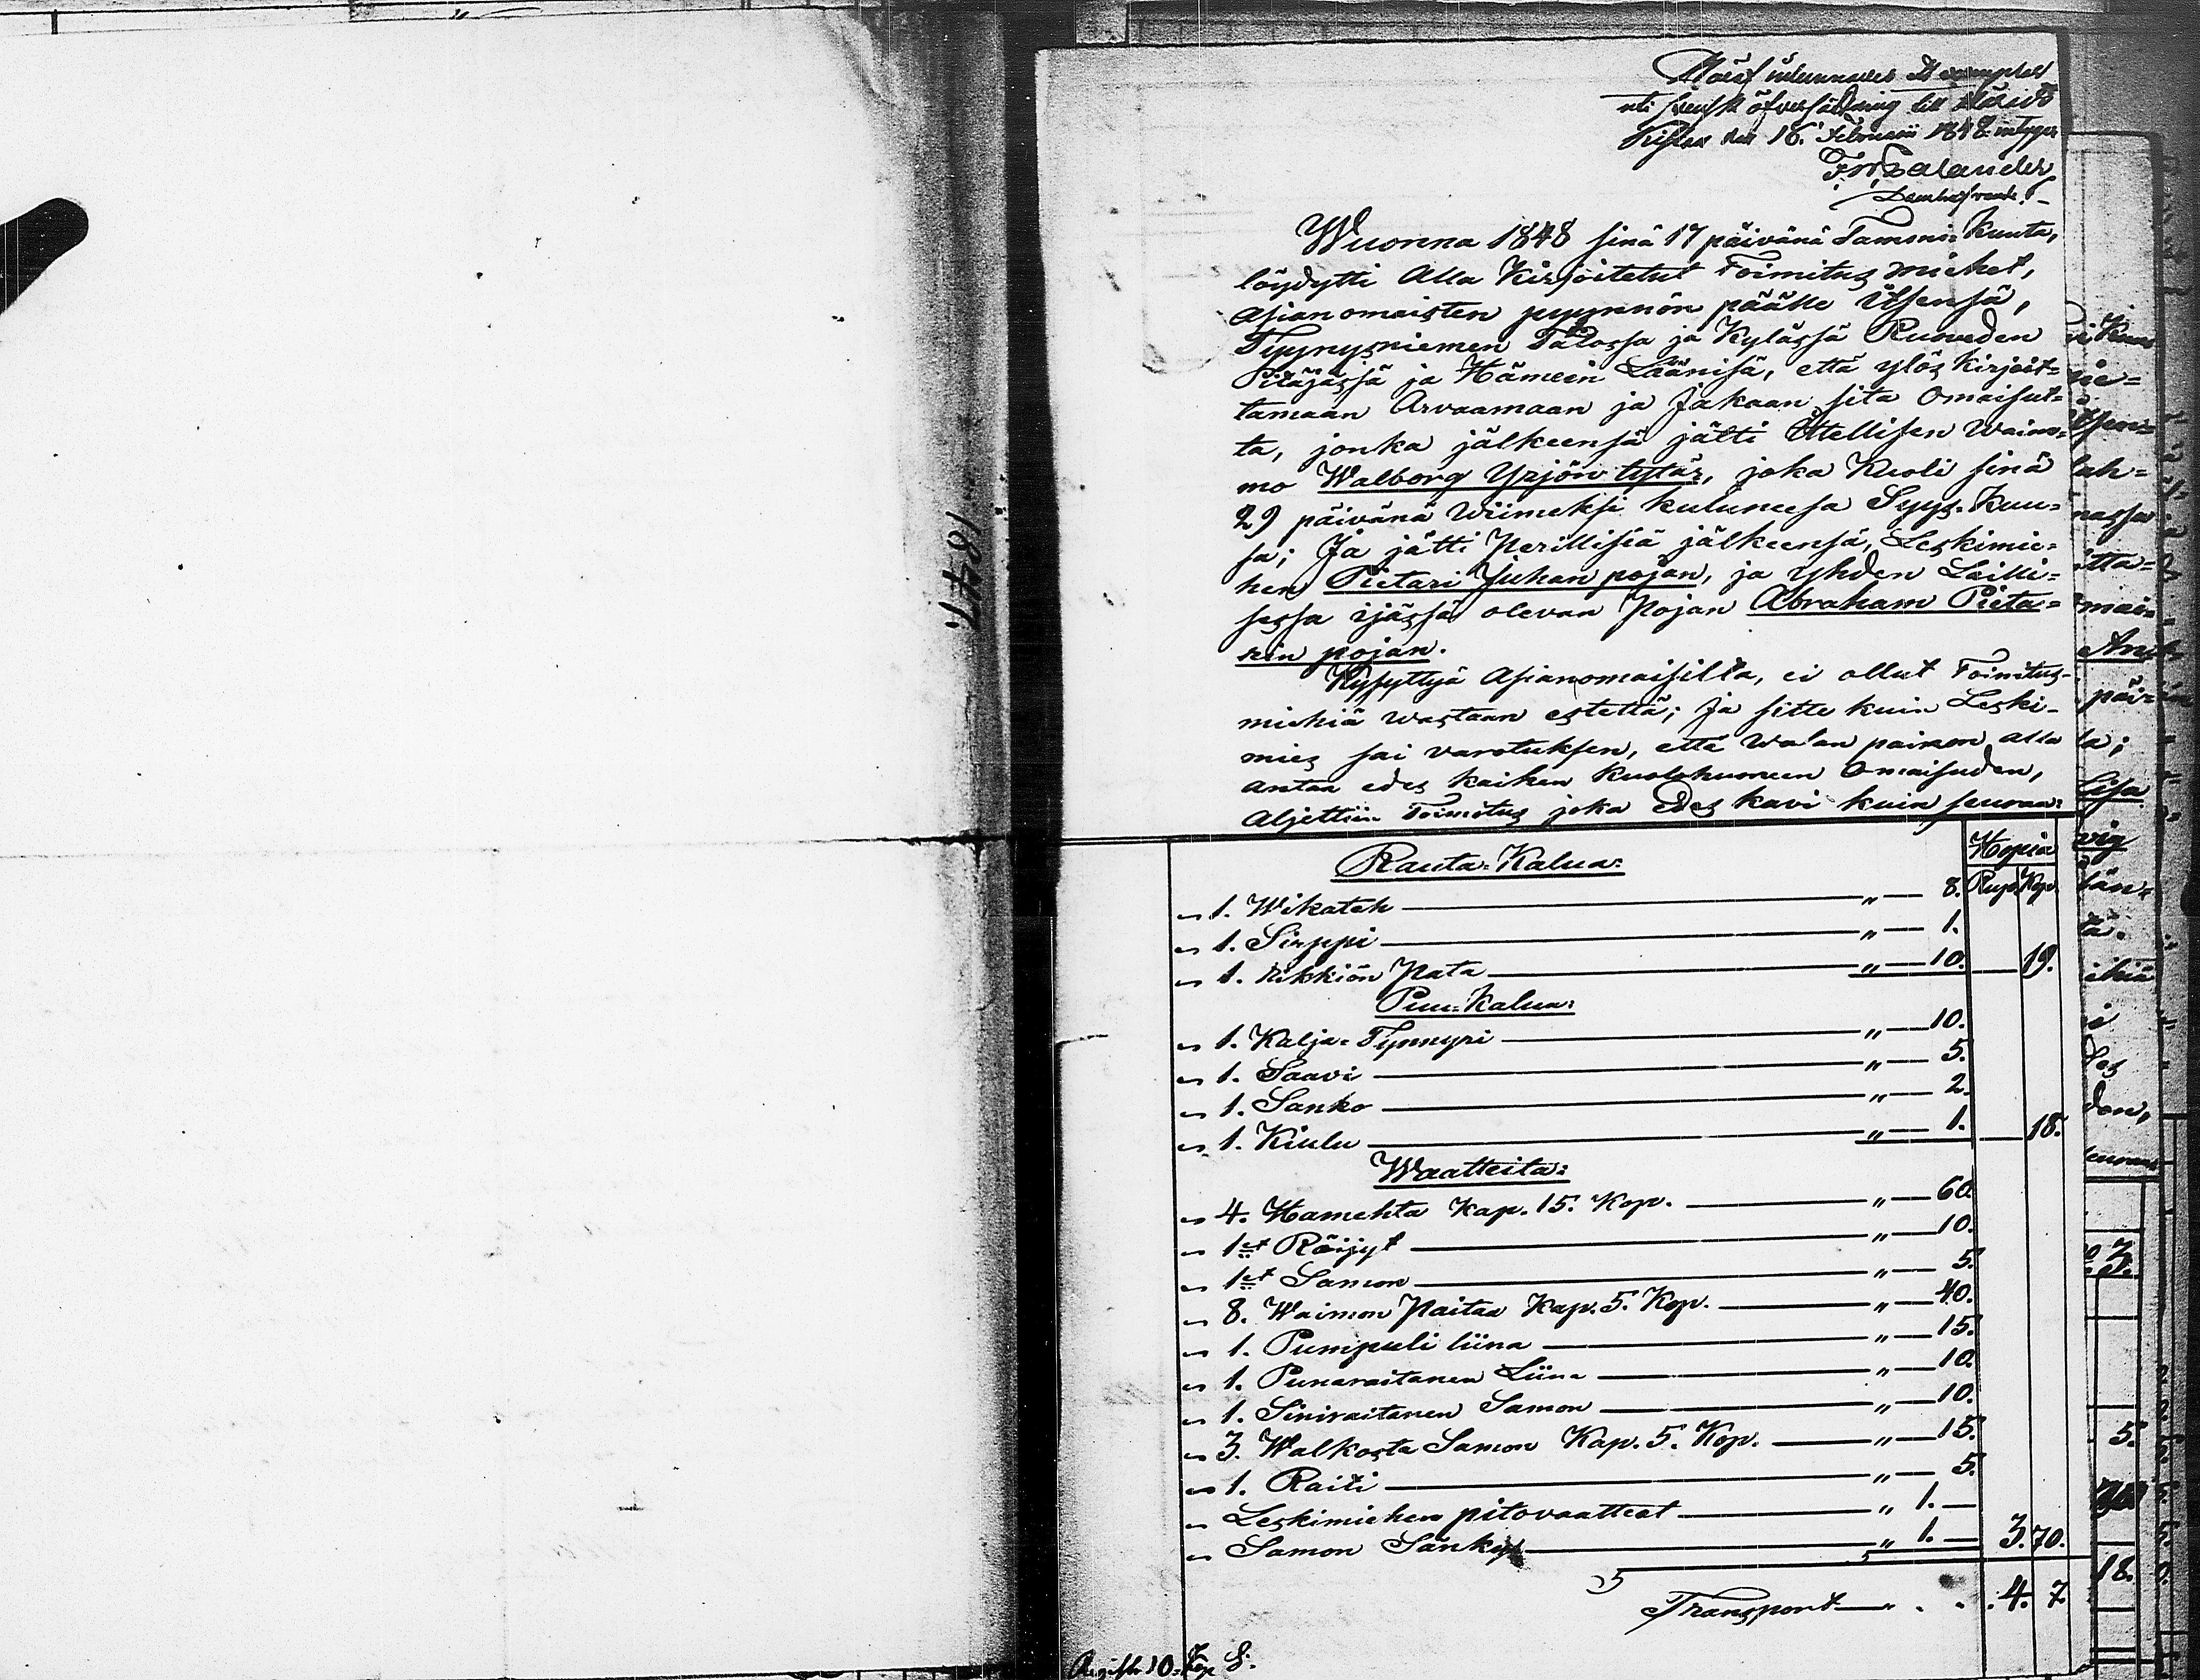 1847.
Häraf inlemnades Et exemplar
uti svensk öfversättning till
den 16. Februarii 1848 intygar
Fr Salander
Wuonna 1848 sinä 17 päivänä Tammi-Kuuta,
löydytti Alla Kirjoitetut Toimitus miehet,
Asianomaisten pyynnön päälle itsensä,
Tyynysniemen Talossa ja Kylässä Ruoveden
Pitäjässä ja Hämein Läänisä, että ylös kirjoit-
tamaan Arvaamaan ja Jakaan sita Omaisut-
ta, jonka jälkeensä jätti Itellisen Waim-
mo Walborg Yrjön tytär, joka Kuoli sinä
29 päivänä Wiimeksi kuluneesa Syys-Kuu-
sa; Ja jätti Perillisiä jälkeensä, Leskimie-
hen Pietari Juhan pojan, ja yhden Lailli-
sessa ijässä olevan Pojan Abraham Pieta-
rin pojan.
Kysyttyä Asianomaisilta, ei ollut Toimitus-
miehiä wastaan estettä; Ja sitte kuin Leski-
mies sai varotuksen, että walan painon alla
antaa edes kaiken Kuolohuoneen Omaisuden,
Aljettiin Toimitus joka Edes kävi kuin seuraa:
Hopia
Rauta-Kalua: Rup. Kop.
" 1. Wikateh " — 8.
" 1. Sirppi " — 1.
" 1. Rikkiön Pata " — 10. — 19.
Puu-Kalua:
" 1. Kalja-Tynnyri " — 10.
" 1. Saavi " — 5.
" 1. Sanko " — 2.
" 1. Kiulu " — 1. — 18.
Waatteita:
" 4. Hamehta Kap. 15. Kop. " — 60.
" 1et Röijyt " — 10.
" 1et Samon " — 5.
" 8. Waimon Paitaa Kap. 5. Kop. " — 40.
" 1. Pumpuli liina " — 15.
" 1. Punaraitanen Liina " — 10.
" 1. Siniraitanen Samon " — 10.
" 3. Walkosta Samon Kap. 5. Kop. " — 15.
" 1. Raiti " — 5.
" Leskimiehen pitovaatteet " 1. —
" Samon Sänky " 1. — 3. 70.
Transport " . . 4. 7